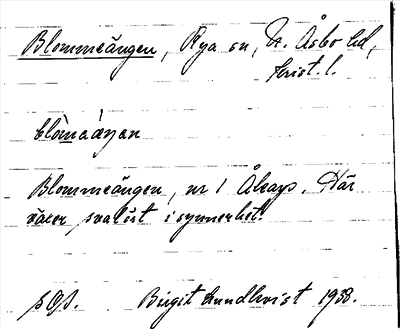 Blommeängen, Rya sn, N. Åsbo hd,
Krist. l.
blòmaáŋan
Blommeängen, nr 1 Åharps. Här
växer svalört i synnerhet.
Birgit Lundkvist 1938.